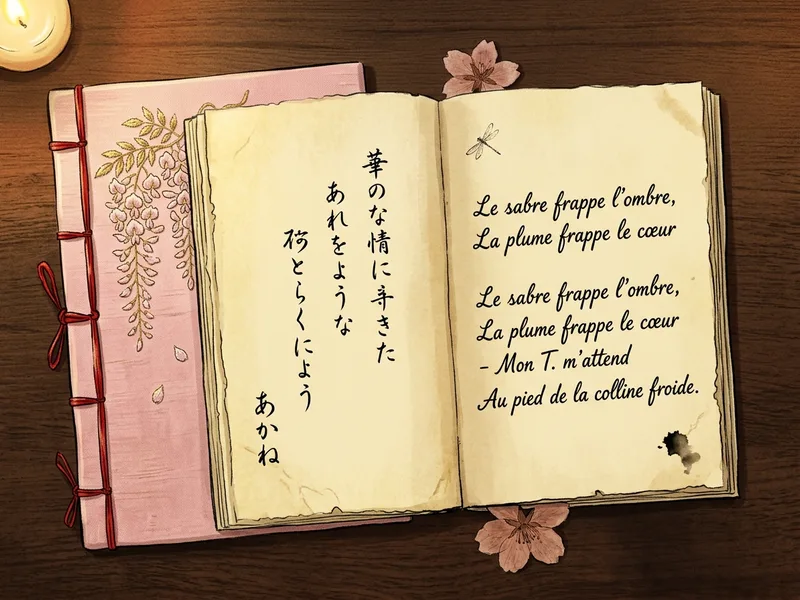 華のな情に寻きた
あれをような
とらくによう
あかね
Le sabre frappe l'ombre,
La plume frappe le cœur
Le sabre frappe l'ombre,
La plume frappe le cœur
– Mon T. m'attend
Au pied de la colline froide.